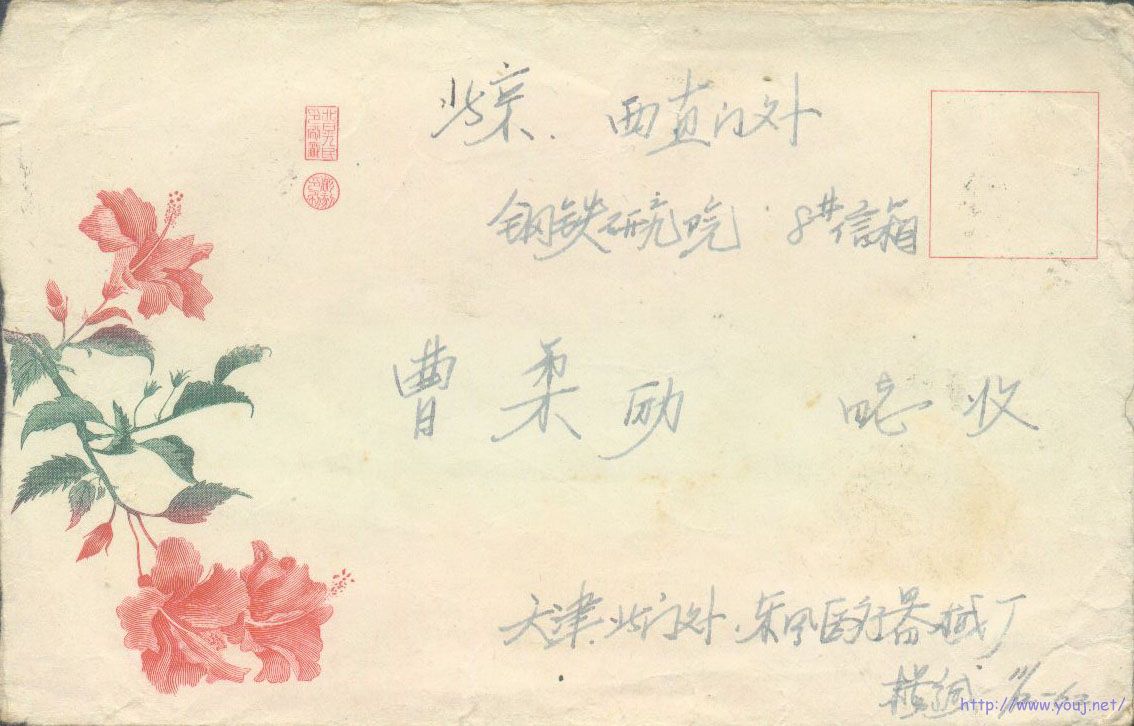 北京. 西直门外
钢铁研究院 8#信箱
曹柔励 收
天津.北门外.东风医疗器械厂
http://www.youj.net/